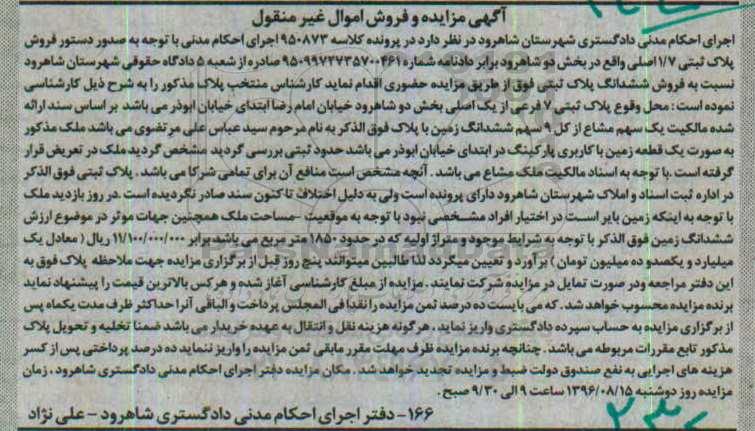 آگهی مزایده و فروش اموال غیر منقول
اجرای احکام مدنی دادگستری شهرستان شاهرود در نظر دارد در پرونده کلاسه ۹۵۰۸۷۳ اجرای احکام مدنی با توجه به صدور دستور فروش
پلاک ثبتی ۱/۷ اصلی واقع در بخش دو شاهرود برابر دادنامه شماره ۹۵۰۹۹۷۲۷۳۵۷۰۰۴۶۱ صادره از شعبه ۵ دادگاه حقوقی شهرستان شاهرود
نسبت به فروش ششدانگ پلاک ثبتی فوق از طریق مزایده حضوری اقدام نماید کارشناس منتخب پلاک مذکور را به شرح ذیل کارشناسی
نموده است : محل وقوع پلاک ثبتی ۷ فرعی از یک اصلی بخش دو شاهرود خیابان امام رضا ابتدای خیابان ابوذر می باشد بر اساس سند ارائه
شده مالکیت یک سهم مشاع از کل ۹ سهم ششدانگ زمین با پلاک فوق الذکر به نام مرحوم سید عباس علی مرتضوی می باشد ملک مذکور
به صورت یک قطعه زمین با کاربری پارکینگ در ابتدای خیابان ابوذر می باشد حدود ثبتی بررسی گردید مشخص گردید ملک در تعریض قرار
گرفته است .با توجه به اسناد مالکیت ملک مشاع می باشد . آنچه مشخص است منافع آن برای تمامی شرکا می باشد . پلاک ثبتی فوق الذکر
در اداره ثبت اسناد و املاک شهرستان شاهرود دارای پرونده است ولی به دلیل اختلاف تا کنون سند صادر نگردیده است .در روز بازدید ملک
با توجه به اینکه زمین بایر است در اختیار افراد مشخصی نبود با توجه به موقعیت -مساحت ملک همچنین جهات موثر در موضوع ارزش
ششدانگ زمین فوق الذکر با توجه به شرایط موجود و متراژ اولیه که در حدود ۱۸۵۰ متر مربع می باشد برابر ۱۱/۱۰۰/۰۰۰/۰۰۰ ریال ( معادل یک
میلیارد و یکصدو ده میلیون تومان ) برآورد و تعیین میگردد لذا طالبین میتوانند پنج روز قبل از برگزاری مزایده جهت ملاحظه پلاک فوق به
این دفتر مراجعه ودر صورت تمایل در مزایده شرکت نمایند . مزایده از مبلغ کارشناسی آغاز شده و هرکس بالاترین قیمت را پیشنهاد نماید
برنده مزایده محسوب خواهد شد . که می بایست ده درصد ثمن مزایده را نقدا فی المجلس پرداخت و الباقی آنرا حداکثر ظرف مدت یکماه پس
از برگزاری مزایده به حساب سپرده دادگستری واریز نماید . هرگونه هزینه نقل و انتقال به عهده خریدار می باشد ضمنا تخلیه و تحویل پلاک
مذکور تابع مقررات مربوطه می باشد . چنانچه برنده مزایده ظرف مهلت مقرر مابقی ثمن مزایده را واریز ننماید ده درصد پرداختی پس از کسر
هزینه های اجرایی به نفع صندوق دولت ضبط و مزایده تجدید خواهد شد . مکان مزایده دفتر اجرای احکام مدنی دادگستری شاهرود ، زمان
مزایده روز دوشنبه ۱۳۹۶/۰۸/۱۵ ساعت ۹ الی ۹/۳۰ صبح .
۱۶۶- دفتر اجرای احکام مدنی دادگستری شاهرود - علی نژاد